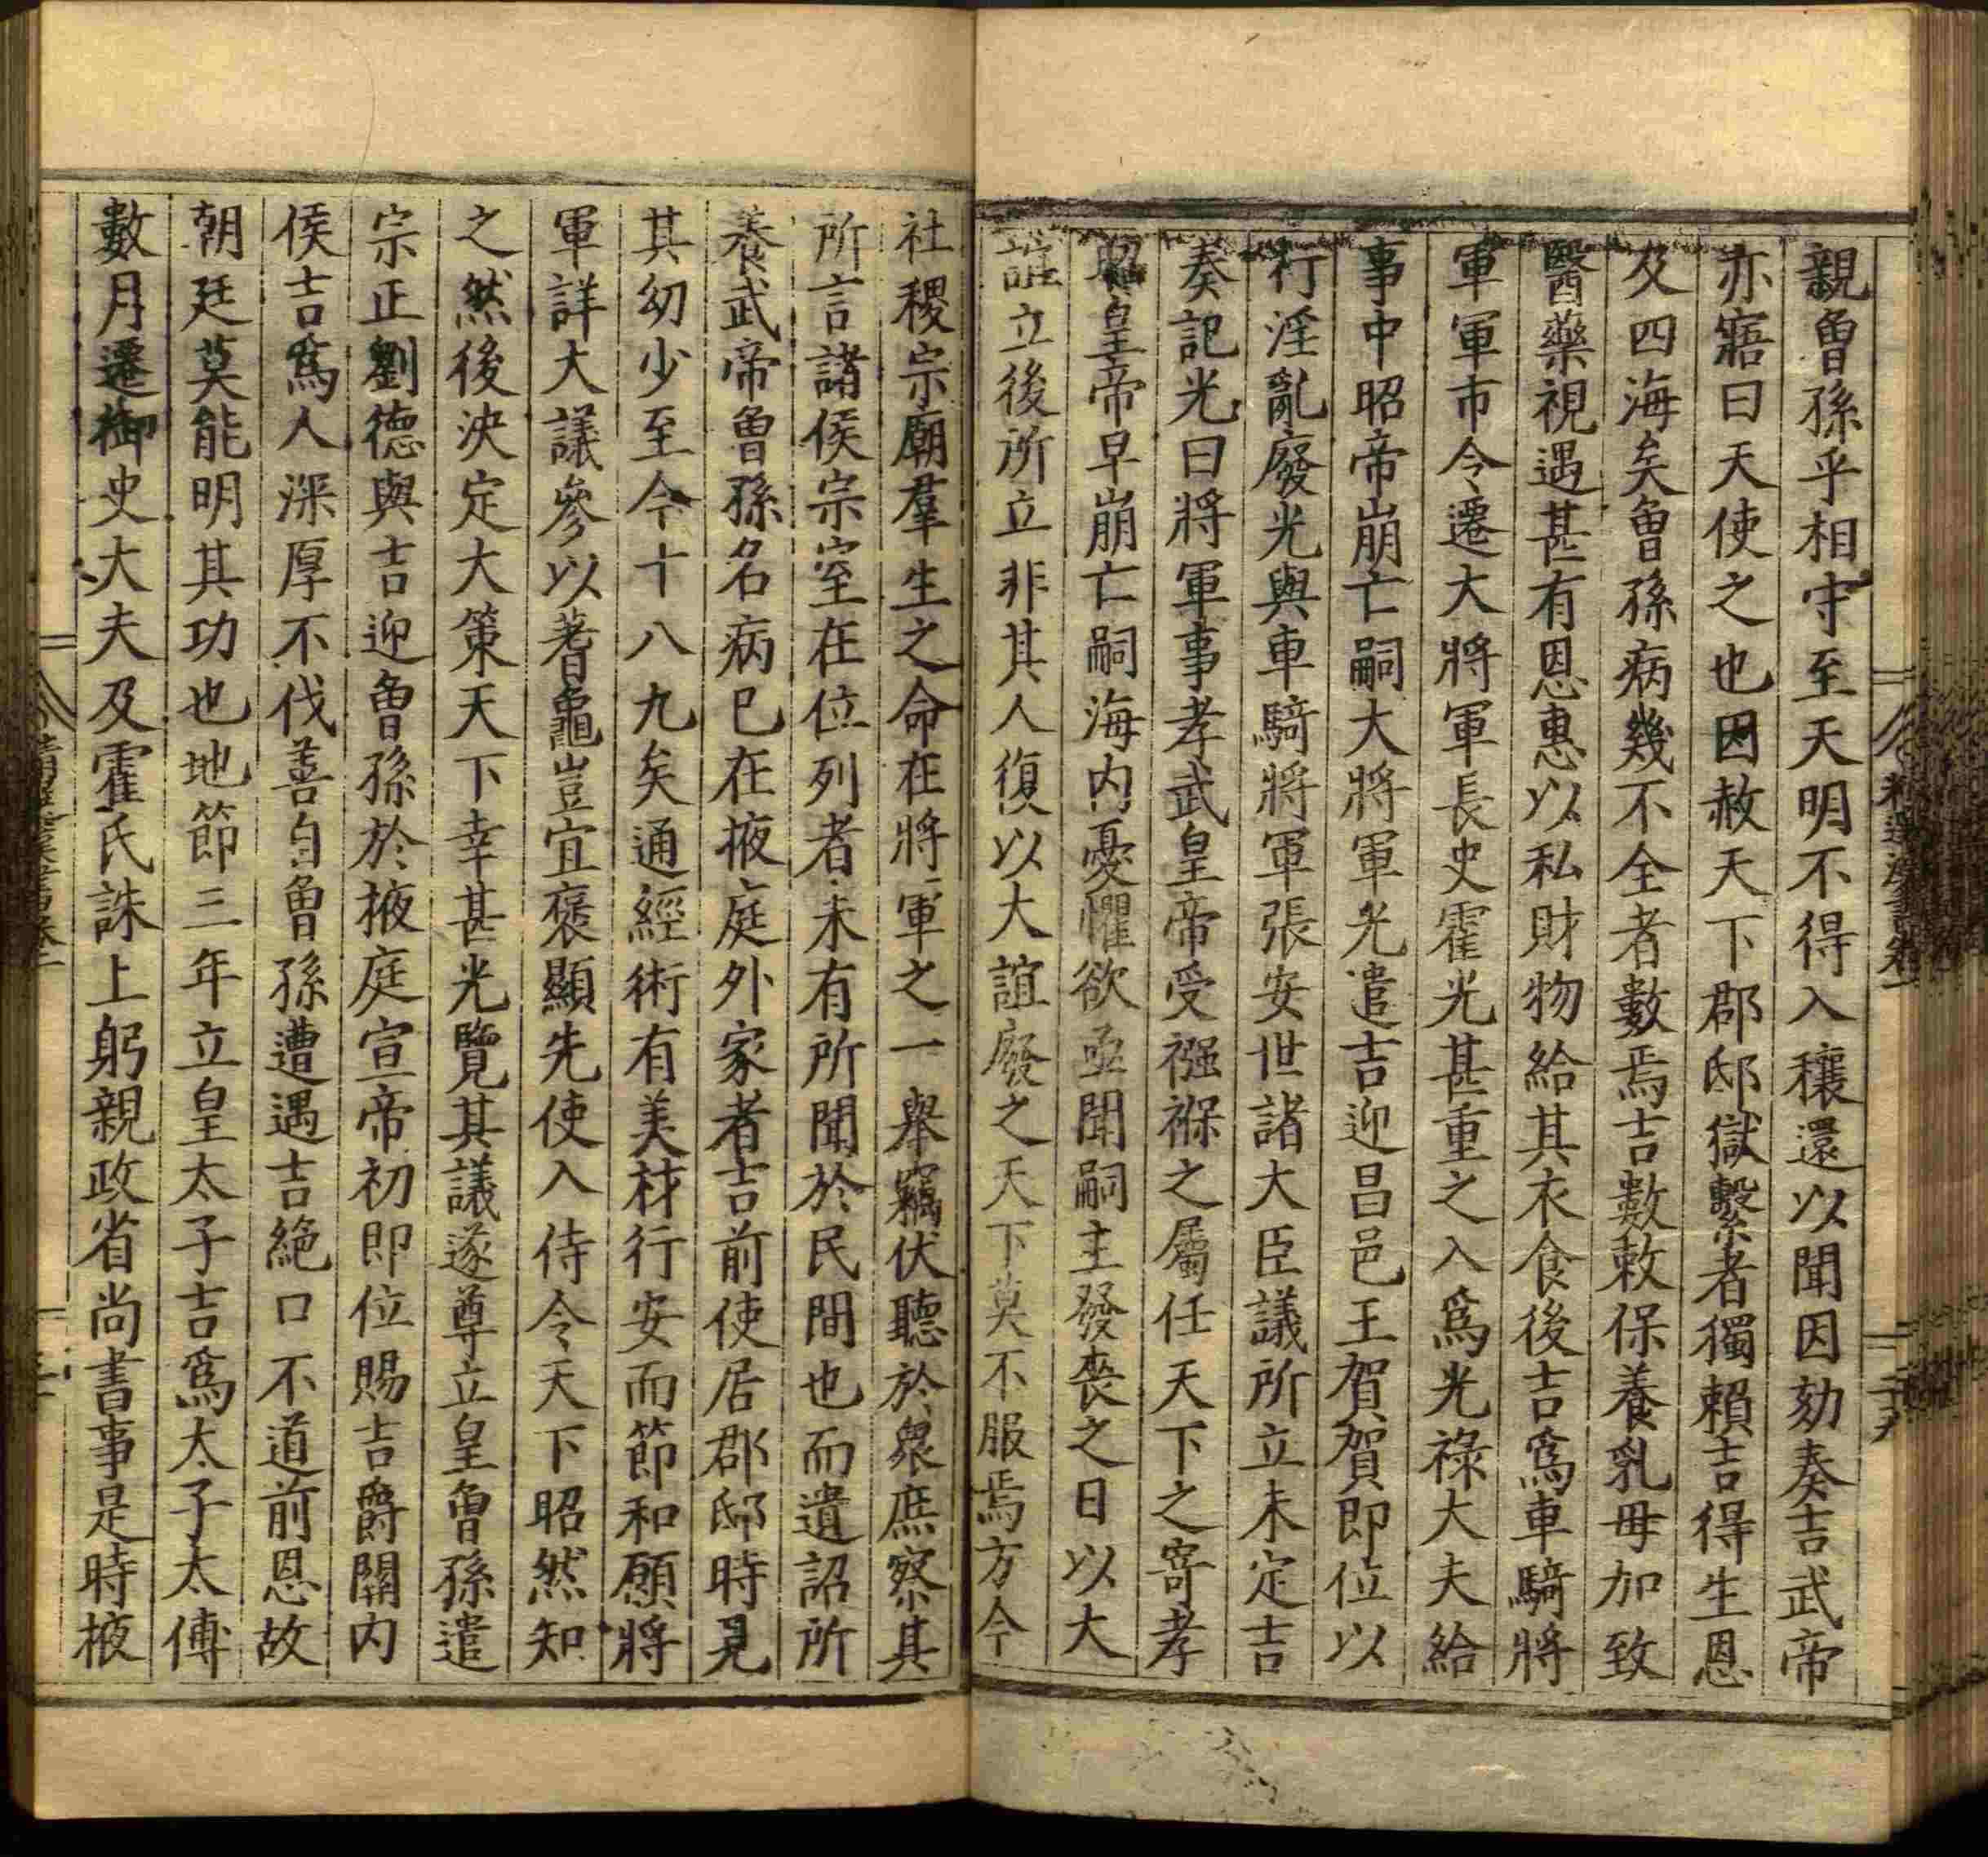 親曾孫乎相守至天明不得入穰還以聞因劾奏吉武帝
亦寤曰天使之也因赦天下郡邸獄繫者獨賴吉得生恩
及四海矣曾孫病幾不全者數焉吉數敕保養乳母加致
醫藥視遇甚有恩惠以私財物給其衣食後吉爲車騎將
軍軍市令遷大將軍長史霍光甚重之入爲光祿大夫給
事中昭帝崩亡嗣大將軍光遣吉迎昌邑王賀賀即位以
行淫亂廢光與車騎將軍張安世諸大臣議所立未定吉
奏記光曰將軍事孝武皇帝受襁褓之屬任天下之寄孝
昭皇帝早崩亡嗣海内憂懼欲亟聞嗣主發喪之日以大
誼立後所立非其人復以大誼廢之天下莫不服焉方今
社稷宗廟羣生之命在將軍之一舉竊伏聽於衆庶察其
所言諸侯宗室在位列者未有所聞於民間也而遺詔所
養武帝曾孫名病已在掖庭外家者吉前使居郡邸時見
其幼少至今十八九矣通經術有美材行安而節和願將
軍詳大議參以蓍龜豈宜褒顯先使入侍令天下昭然知
之然後決定大策天下幸甚光覽其議遂尊立皇曾孫遣
宗正劉德與吉迎曾孫於掖庭宣帝初即位賜吉爵關内
侯吉爲人深厚不伐善自曾孫遭遇吉絕口不道前恩故
朝廷莫能明其功也地節三年立皇太子吉爲太子太傅
數月遷御史大夫及霍氏誅上躬親政省尚書事是時掖